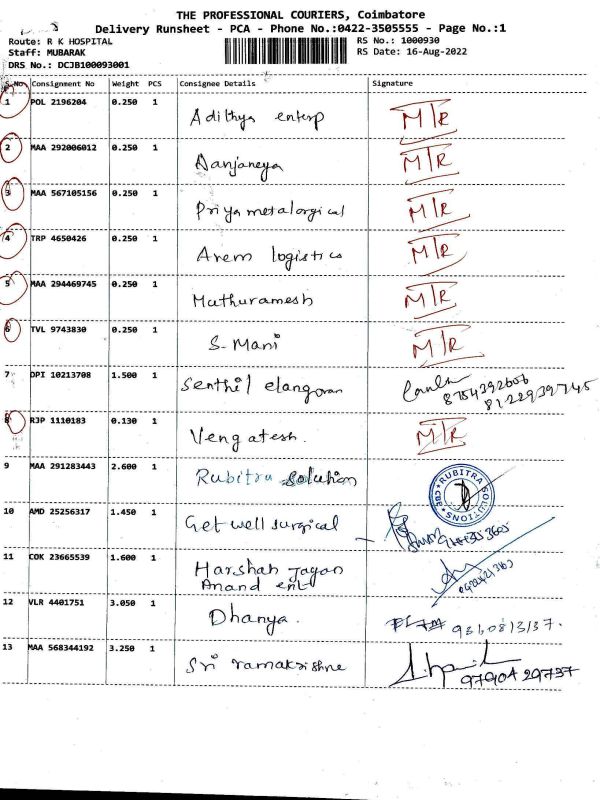 THE PROFESSIONAL COURIERS, Coimbatore
Delivery Runsheet - PCA - Phone No.:0422-3505555 - Page No.:1
Route: R K HOSPITAL RS No.: 1000930
Staff: MUBARAK RS Date: 16-Aug-2022
DRS No.: DCJB100093001
S.No. Consignment No Weight PCS Consignee Details Signature
1 POL 2196204 0.250 1 Adithya enterp M/R
2 MAA 292006012 0.250 1 Aanjaneya M/R
3 MAA 567105156 0.250 1 Priya metalorgical M/R
4 TRP 4650426 0.250 1 Arem logistics M/R
5 MAA 294469745 0.250 1 Muthuramesh M/R
6 TVL 9743830 0.250 1 S-Mani M/R
7 OPI 10213708 1.500 1 Senthil elangovan
8754392606
8122939745
8 RJP 1110183 0.130 1 Vengatesh. M/R
9 MAA 291283443 2.600 1 Rubitra solution RUBITRA SOLUTIONS CBE
10 AMD 25256317 1.450 1 Get well surgical
11 COK 23665539 1.600 1 Harshan Jagan
Anand ent
12 VLR 4401751 3.050 1 Dhanya.
13 MAA 568344192 3.250 1 Sri ramakrishne
97904 29737